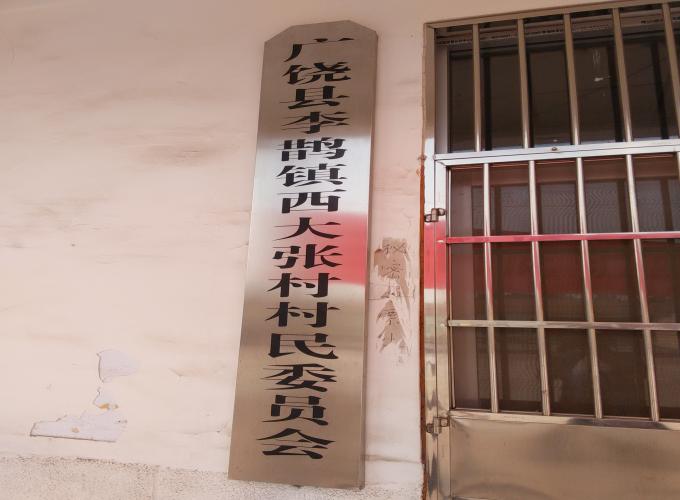 广饶县李鹊镇西大张村村民委员会